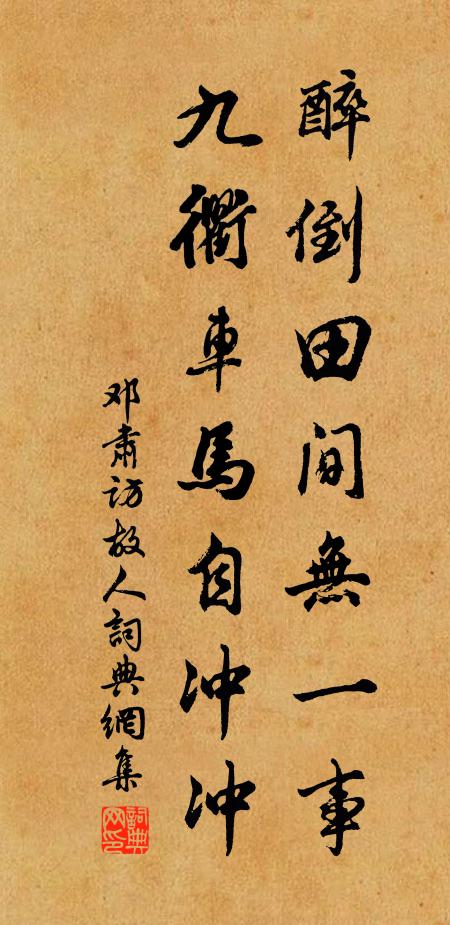 醉倒田間無一事
九衢車馬自冲冲
邓肅访故人詞典網集
詞典網印